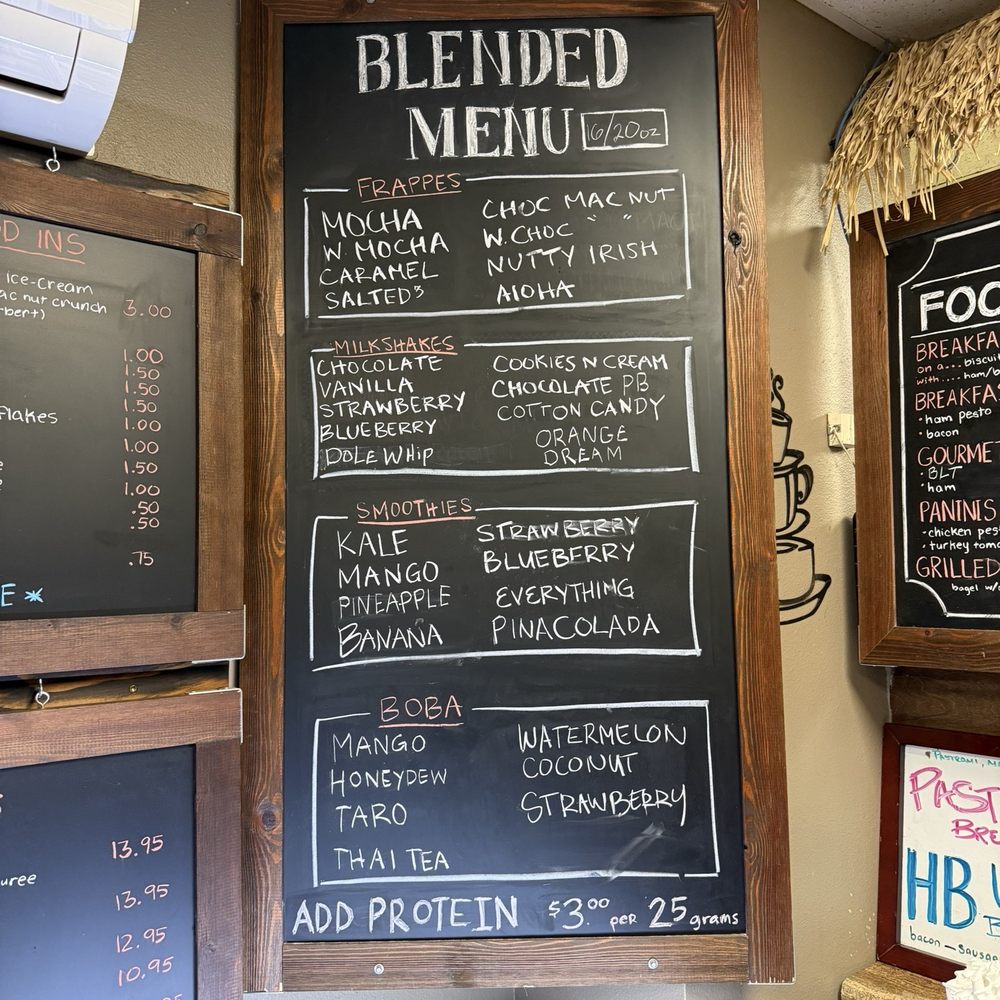 BLENDED
MENU 16/20oz
FRAPPES
MOCHA
W. MOCHA
CARAMEL
SALTED
CHOC MAC NUT
W. CHOC " "
NUTTY IRISH
AlOHA
MILKSHAKES
CHOCOLATE
VANILLA
STRAWBERRY
BLUEBERRY
DOLE WHIP
COOKIES N CREAM
CHOCOLATE PB
COTTON CANDY
ORANGE
DREAM
SMOOTHIES
KALE
MANGO
PINEAPPLE
BANANA
STRAWBERRY
BLUEBERRY
EVERYTHING
PINACOLADA
BOBA
MANGO
HONEYDEW
TARO
THAI TEA
WATERMELON
COCONUT
STRAWBERRY
ADD PROTEIN $3.00 per 25 grams
D INS
ICE-Cream
ac nut crunch 3.00
rbert)
1.00
1.50
1.50
1.50
Flakes 1.00
1.00
1.50
1.00
.50
.50
.75
E *
13.95
uree
13.95
12.95
10.95
FOO
BREAKFA
on a... biscui
with.... ham/b
BREAKFA
• ham pesto
• bacon
GOURME
• BLT
• ham
PANINIS
• chicken pes
• turkey toma
GRILLED
bagel w/
PAST
BRE
HB
bacon - Sausag